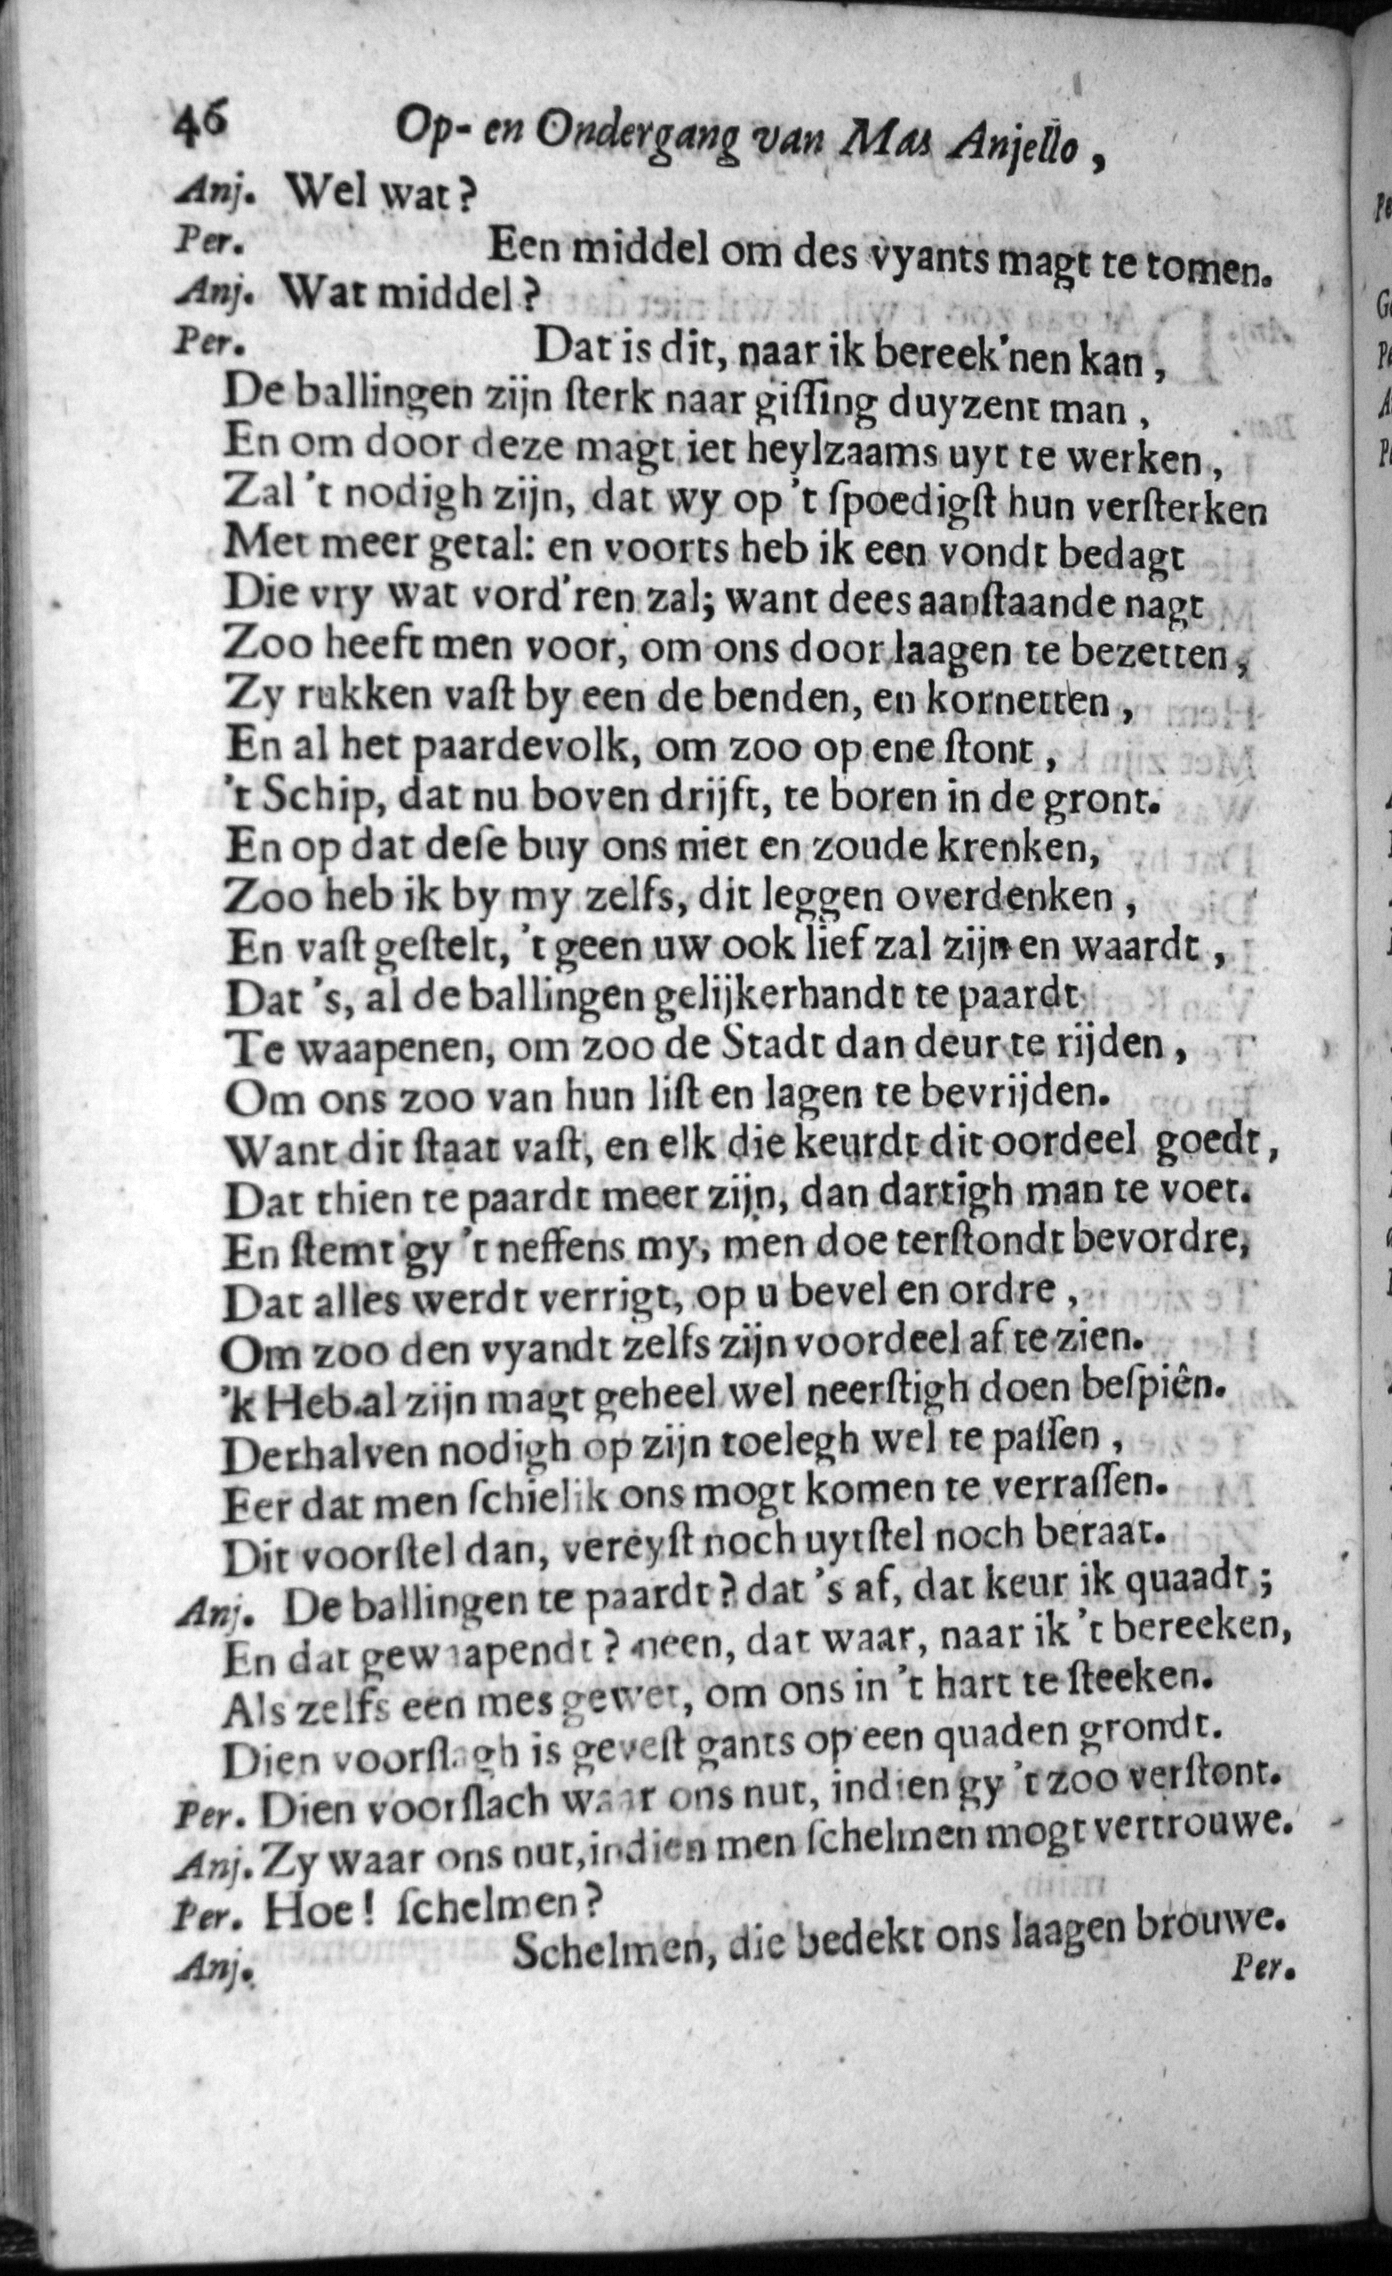 46 Op- en Ondergang van Mas Anjello,
Anj. Wel wat?
Per. Een middel om des vyants magt te tomen.
Anj. Wat middel?
Per. Dat is dit, naar ik bereek'nen kan,
De ballingen zijn ſterk naar giſſing duyzent man,
En om door deze magt iet heylzaams uyt te werken,
Zal 't nodigh zijn, dat wy op 't ſpoedigſt hun verſterken
Met meer getal: en voorts heb ik een vondt bedagt
Die vry wat vord'ren zal; want dees aanſtaande nagt
Zoo heeft men voor, om ons door laagen te bezetten,
Zy rukken vaſt by een de benden, en kornetten,
En al het paardevolk, om zoo op ene ſtont,
't Schip, dat nu boven drijft, te boren in de gront.
En op dat deſe buy ons niet en zoude krenken,
Zoo heb ik by my zelfs, dit leggen overdenken,
En vaſt geſtelt, 't geen uw ook lief zal zijn en waardt,
Dat 's, al de ballingen gelijkerhandt te paardt
Te waapenen, om zoo de Stadt dan deur te rijden,
Om ons zoo van hun liſt en lagen te bevrijden.
Want dit ſtaat vaſt, en elk die keurdt dit oordeel goedt,
Dat thien te paardt meer zijn, dan dartigh man te voet.
En ſtemt gy 't neffens my, men doe terſtondt bevordre,
Dat alles werdt verrigt, op u bevel en ordre,
Om zoo den vyandt zelfs zijn voordeel af te zien.
'k Heb al zijn magt geheel wel neerſtigh doen beſpiên.
Derhalven nodigh op zijn toelegh wel te paſſen,
Eer dat men ſchielik ons mogt komen te verraſſen.
Dit voorſtel dan, vereyſt noch uytſtel noch beraat.
Anj. De ballingen te paardt? dat 's af, dat keur ik quaadt;
En dat gewaapendt? neen, dat waar, naar ik 't bereeken,
Als zelfs een mes gewet, om ons in 't hart te ſteeken.
Dien voorſlagh is geveſt gants op een quaden grondt.
Per. Dien voorſlach waar ons nut, indien gy 't zoo verſtont.
Anj. Zy waar ons nut, indien men ſchelmen mogt vertrouwe.
Per. Hoe! ſchelmen?
Anj. Schelmen, die bedekt ons laagen brouwe.
Per.